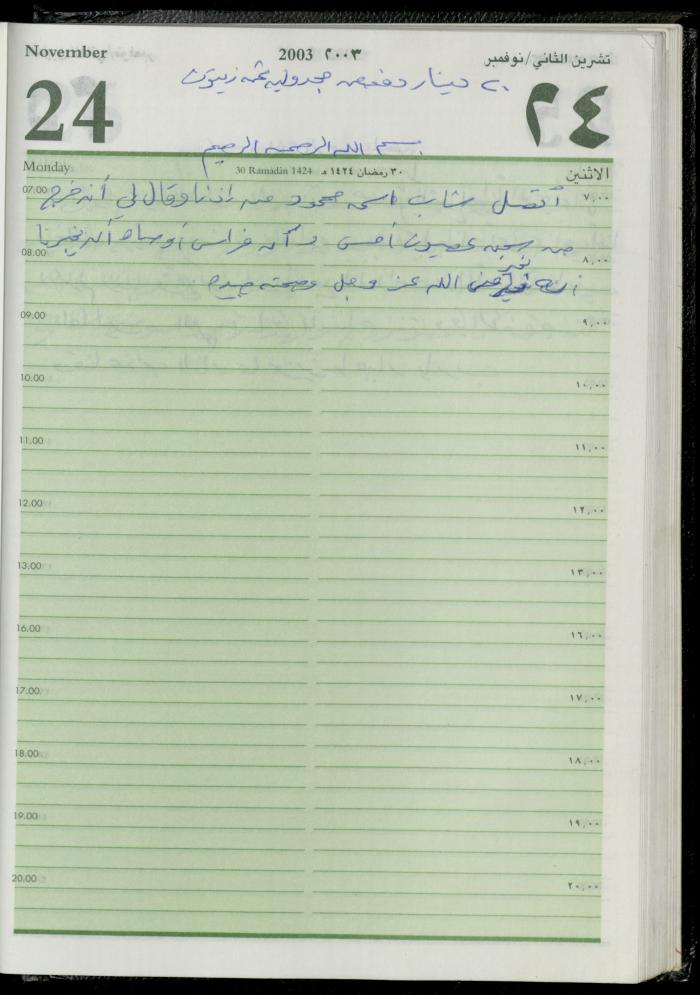 November 2003 ٢٠٠٣ تشرين الثاني/نوفمبر
24 ٢٤
٢٠ دينار دفعه مجدوليه ثمن زيتون
بسم الله الرحمن الرحيم
Monday 30 Ramadān 1424 ٣٠ رمضان ١٤٢٤ هـ الاثنين
07.00 ٧,٠٠
أتصل شاب اسمه محمود من اذنا وقال لي أنه خرج
من سجن عصيون أمس وأن فراس أوصاه أن يخبرنا
08.00 ٨,٠٠
أنه بخير من الله عز وجل وصحته جيده
09.00 ٩,٠٠
10.00 ١٠,٠٠
11.00 ١١,٠٠
12.00 ١٢,٠٠
13.00 ١٣,٠٠
16.00 ١٦,٠٠
17.00 ١٧,٠٠
18.00 ١٨,٠٠
19.00 ١٩,٠٠
20.00 ٢٠,٠٠